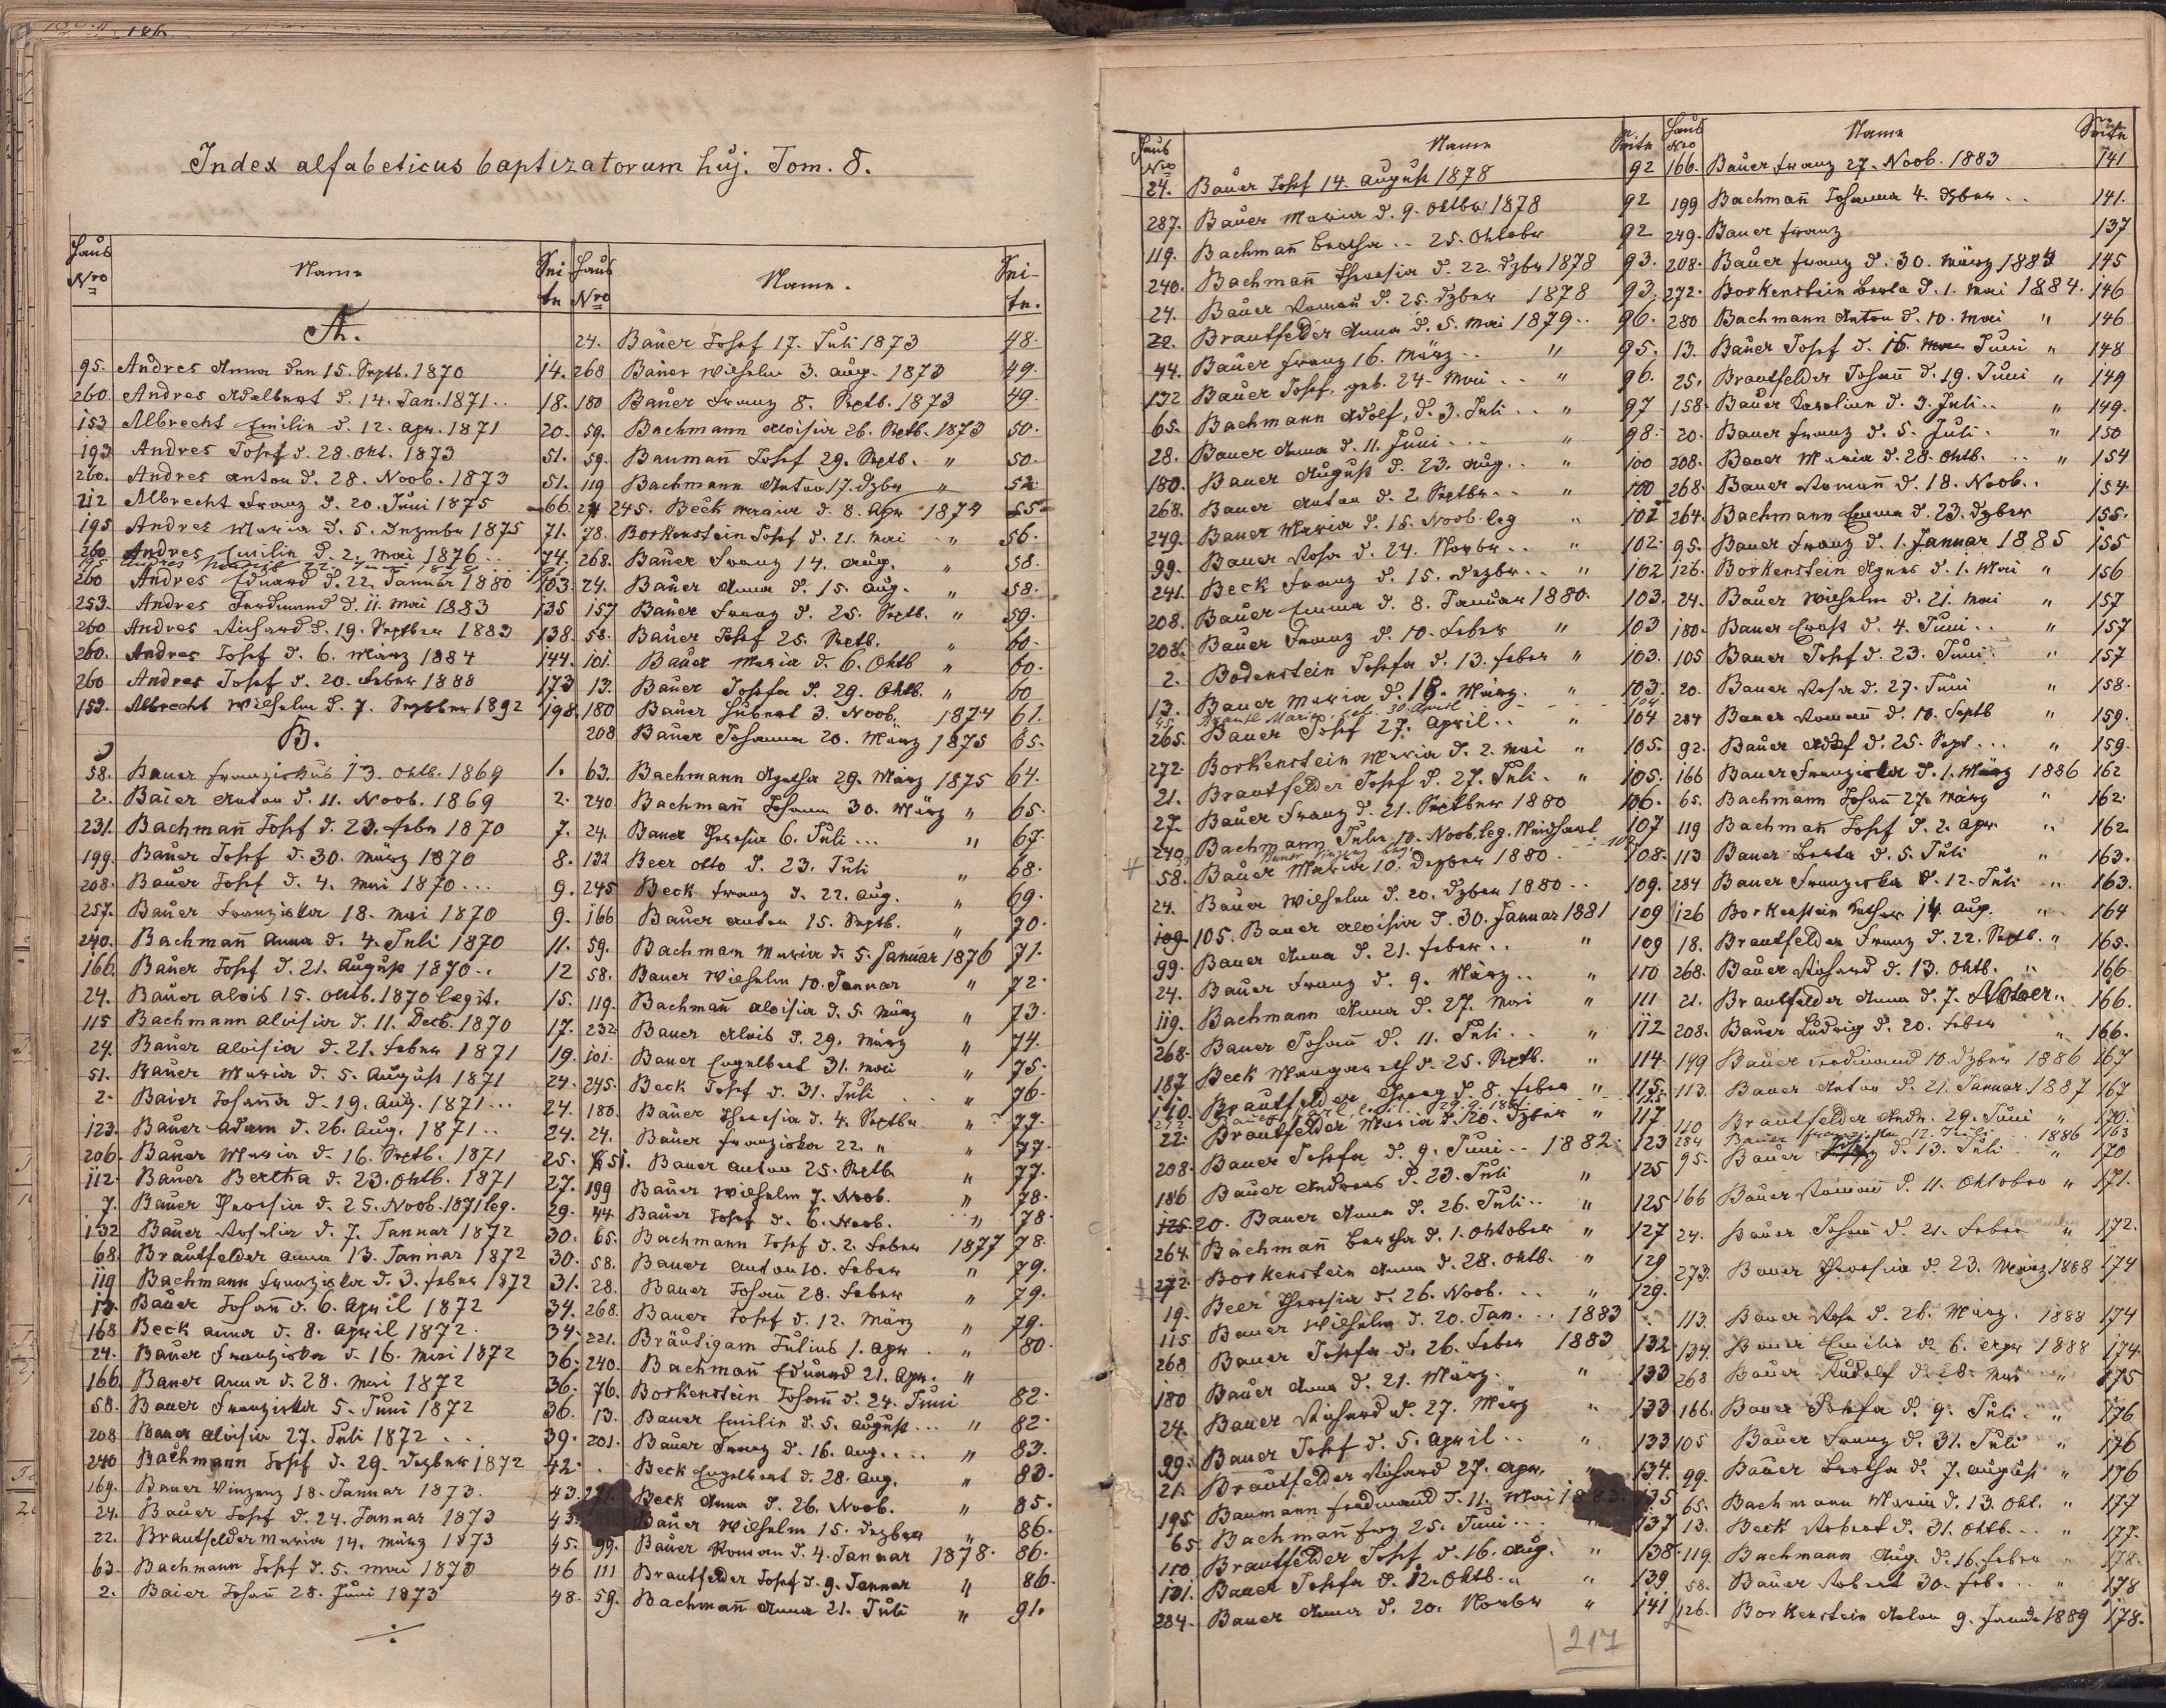 Index alfabeticus baptizatorum huj. Tom. 8.
Haus Nro Name Seite
A.
95. Andres Anna den 15. Septb. 1870 14.
260 Andres Adalbert d. 14. Jan. 1871.. 18.
153 Albrecht Emilie d. 12. Apr. 1871 20.
193 Andres Josef d. 28. Okt. 1873 51.
260. Andres Anton d. 28. Novb. 1873 51.
212 Albrecht Franz d. 20. Juni 1875 66.
195 Andres Maria d. 5. Dezember 1875 71.
260 Andres Emilie d. 2. Mai 1876 74.
260 Andres Eduard d. 22. Januar 1880 103.
253. Andres Ferdinand d. 11. Mai 1883 135
260 Andres Richard d. 19. Septber 1883 138.
260. Andres Josef d. 6. März 1884 144.
260 Andres Josef d. 20. Feber 1888 173
153. Albrecht Wilhelm d. 7. Septber 1892 198.
B.
58. Bauer Franziskus 13. Oktb. 1869 1.
2. Baier Anton d. 11. Novb. 1869 2.
231. Bachmañ Josef d. 23. Feber 1870 7.
199. Bauer Josef d. 30. März 1870 8.
208. Bauer Josef d. 4. Mai 1870... 9.
257. Bauer Franziska 18. Mai 1870 9.
240. Bachmañ Anna d. 4. Juli 1870 11.
166. Bauer Josef d. 21. August 1870.. 12
24. Bauer Alois 15. Oktb. 1870 legit. 15.
115 Bachmann Aloisia d. 11. Decb. 1870 17.
24. Bauer Aloisia d. 21. Feber 1871 19.
51. Bauer Maria d. 5. August 1871 24.
2. Baier Johañа d. 19. Aug. 1871... 24.
123. Bauer Adam d. 26. Aug. 1871.. 24.
206. Bauer Maria d. 16. Septb. 1871 25.
112. Bauer Bertha d. 23. Oktb. 1871 27.
7. Bauer Theresia d. 25. Novb. 1871 leg. 29.
132 Bauer Rosalia d. 7. Januar 1872 30.
68. Brautfelder Anna 13. Januar 1872 30.
119 Bachmann Franziska d. 3. Feber 1872 31.
13. Bauer Johañ d. 6. April 1872 34.
168 Beck Anna d. 8. April 1872. 34.
24. Bauer Franziska d. 16. Mai 1872 36.
166. Bauer Anna d. 28. Mai 1872 36.
58. Bauer Franziska 5. Juni 1872 36.
208 Bauer Aloisia 27. Juli 1872 .. 39.
240 Bachmann Josef d. 29. Dezber 1872 42.
169. Bauer Vinzenz 18. Januar 1873. 43.
24. Bauer Josef d. 24. Januar 1873 43.
22. Brautfelder Maria 14. März 1873 45.
63. Bachmann Josef d. 5. Mai 1873 46
2. Baier Johañ 28. Juni 1873 48.
Haus Nro Name. Seite.
24. Bauer Josef 17. Juli 1873 48.
268 Bauer Wilhelm 3. Aug. 1873 49.
180 Bauer Franz 8. Septb. 1873 49.
59. Bachmann Aloisia 26. Septb. 1873 50.
59. Baumañ Josef 29. Septb. " 50.
119 Bachmann Anton 17. Dzbr " 52.
245. Beck Maria d. 8. Apr 1874 55.
78. Borkenstein Josef d. 21. Mai " 56.
268. Bauer Franz 14. Aug. " 58.
24. Bauer Anna d. 15. Aug. " 58.
157 Bauer Franz d. 25. Septb. " 59.
58. Bauer Josef 25. Septb. " 60.
101. Bauer Maria d. 6. Oktb " 60.
13. Bauer Josefa d. 29. Oktb. " 60
180 Bauer Hubert 3. Novb. 1874 61.
208 Bauer Johanna 20. März 1875 65.
63. Bachmann Agatha 29. März 1875 64.
240. Bachmañ Johann 30. März " 65.
24. Bauer Theresia 6. Juli ... " 67.
132 Beer Otto d. 23. Juli " 68.
245 Beck Franz d. 22. Aug. " 69.
166 Bauer Anton 15. Septb. " 70.
59. Bachmann Maria d. 5. Januar 1876 71.
58. Bauer Wilhelm 10. Januar " 72.
119. Bachmañ Aloisia d. 5. März " 73.
232 Bauer Alois d. 29. März " 74.
101. Bauer Engelbert 31. Mai " 75.
245. Beck Josef d. 31. Juli " 76.
180. Bauer Theresia d. 4. Septbr " 77.
24. Bauer Franziska 22. " " 77.
51. Bauer Anton 25. Septb " 77.
199 Bauer Wilhelm 7. Novb. " 78.
44. Bauer Josef d. 6. Novb. " 78.
65. Bachmann Josef d. 2. Feber 1877 78.
58. Bauer Anton 10. Feber " 79.
28. Bauer Johañ 28. Feber " 79.
268. Bauer Josef d. 12. März " 79.
221. Bräutigam Julius 1. Apr. " 80.
240. Bachmañ Eduard 21. Apr. "
76. Borkenstein Johañ d. 24. Juni 82.
13. Bauer Emilie d. 5. August ... " 82.
201. Bauer Franz d. 16. Aug.... " 83.
Beck Engelbert d. 28. Aug. " 83.
Beck Anna d. 26. Novb. " 85.
Bauer Wilhelm 15. Dezber " 86.
99. Bauer Roman d. 4. Januar 1878. 86.
111 Brautfelder Josef d. 9. Januar " 86.
59. Bachmañ Anna 21. Juli " 91.
Haus Nro Name Seite
24. Bauer Josef 14. August 1878 92
287. Bauer Maria d. 9. Oktbr 1878 92
119. Bachmañ Bertha .. 25. Oktober 92
240. Bachmañ Theresia d. 22. Dzbr 1878 93.
24. Bauer Romañ d. 25. Dzber 1878 93.
22. Brautfelder Anna d. 5. Mai 1879.. 96.
44. Bauer Franz 16. März .. " 95.
132 Bauer Josef, geb. 24. Mai .. " 96.
65. Bachmann Adolf, d. 3. Juli .. " 97
28. Bauer Anna d. 11. Juni ... " 98.
180. Bauer August d. 23. Aug. .. " 100
268. Bauer Anton d. 2 Septbr.. " 100
249. Bauer Maria d. 15. Novb. leg " 102
99. Bauer Rosa d. 24. Novbr.. " 102.
241. Beck Franz d. 15. Dezbr.. " 102
208. Bauer Emma d. 8. Januar 1880. 103.
208. Bauer Franz d. 10. Feber " 103
2. Bodenstein Josefa d. 13. Feber " 103.
13. Bauer Maria d. 18. März. " 103.
265. Bauer Josef 27. April .. " 104
272. Borkenstein Maria d. 2. Mai " 105.
21. Brautfelder Josef d. 27. Juli. " 105.
27. Bauer Franz d. 21. Septber 1880 106.
240. Bachmann Julie 10. Novb. leg. Neidhart 107
58. Bauer Maria 10. Dezber 1880. 108.
24. Bauer Wilhelm d. 20. Dzber 1880.. 109.
105. Bauer Aloisia d. 30. Januar 1881 109
99. Bauer Anna d. 21. Feber.. " 109
24. Bauer Franz d. 9. März.. " 110
119. Bachmann Anna d. 27. Mai " 111
268. Bauer Johañ d. 11. Juli.. " 112
187 Beck Margareth d. 25. Septb. " 114
110. Brautfelder Georg d. 8. Feber " 115.
22. Brautfelder Maria d. 20. Dzber " 117
208. Bauer Josefa d. 9. Juni.. 1882. 123
186 Bauer Andreas d. 23. Juli " 125
20. Bauer Anna d. 26. Juli.. " 125
264. Bachmañ Bertha d. 1. Oktober " 127
272. Borkenstein Anna d. 28. Oktb. " 129
19. Beer Theresia d. 26. Novb. .. " 129.
115 Bauer Wilhelm d. 20. Jan. .. 1883
268 Bauer Josefa d. 26. Feber 1883 132
180 Bauer Anna d. 21. März. " 133
24. Bauer Richard d. 27. März " 133
99. Bauer Josef d. 5. April .. " 133
21. Brautfelder Richard 27. Apr. " 134.
195 Baumann Ferdinand d. 11. Mai 1883. 135
65. Bachmañ Frz 25. Juni ... 137
110. Brautfelder Josef d. 16. Aug. " 138.
101. Bauer Josefa d. 12. Oktb. " 139
284. Bauer Anna d. 20. Novbr " 141
217
Haus Nro Name Seite
166. Bauer Franz 27. Novb. 1883 141
199 Bachmañ Johanna 4. Dzber .. 141.
249. Bauer Franz 137
208. Bauer Franz d. 30. März 1884 145
272. Borkenstein Berta d. 1. Mai 1884. 146
280 Bachmann Anton d. 10. Mai " 146
13. Bauer Josef d. 15. Juni " 148
25. Brautfelder Johañ d. 19. Juni " 149
158. Bauer Karoline d. 3. Juli .. " 149.
20. Bauer Franz d. 5. Juli. " 150
208. Bauer Maria d. 28. Oktb. .. " 154
268. Bauer Romañ d. 18. Novb.. 154.
264. Bachmann Emma d. 23. Dzber 155.
95. Bauer Franz d. 1. Januar 1885 155
126. Borkenstein Agnes d. 1. Mai " 156
24. Bauer Wilhelm d. 21. Mai " 157
180. Bauer Ernst d. 4. Juni.. " 157
105 Bauer Josef d. 23. Juni. " 157
20. Bauer Rosa d. 27. Juni " 158.
284 Bauer Romañ d. 10. Septb " 159.
92. Bauer Adolf d. 25. Sept... " 159.
166 Bauer Franziska d. 1. März 1886 162
65. Bachmann Johañ 27. März " 162.
119 Bachmañ Josef d. 2. Apr. " 162
113 Bauer Berta d. 5. Juli " 163.
284 Bauer Franziska d. 12. Juli " 163.
126 Borkenstein Luther 14. Aug. " 164
18. Brautfelder Franz d. 22. Septb. " 165.
268. Bauer Richard d. 13. Oktb. " 166
21. Brautfelder Anna d. 7. " 166.
208. Bauer Ludwig d. 20. Feber " 166.
149 Bauer Ferdinand 10. Dzber 1886 167
113. Bauer Anton d. 21. Januar. 1887 167
110 Brautfelder Andr. 29. Juni " 170.
284 Bauer Franziska 12. Juli .. 1886 163
95. Bauer d. 13. Juli. " 170
166 Bauer Romañ d. 11. Oktober " 171.
24. Bauer Johañ d. 21. Feber " 172.
273. Bauer Theresia d. 23. März 1888 174
113. Bauer Rosa d. 26. März. 1888 174
134. Bauer Emilie d. 6. Apr 1888 174.
268 Bauer Rudolf d. 28. Mai " 175
166. Bauer Josefa d. 9. Juli. " 176
105 Bauer Franz d. 31. Juli " 176
99. Bauer Bertha d. 7. August " 176
65. Bachmann Maria d. 13. Okt. " 177
13. Beck Robert d. 31. Oktb... " 177.
119. Bachmann Aug. d. 16. Feber " 178.
58. Bauer Robert 30. Feb. .. " 178
126. Borkenstein Anton 9. Januar 1889 178.